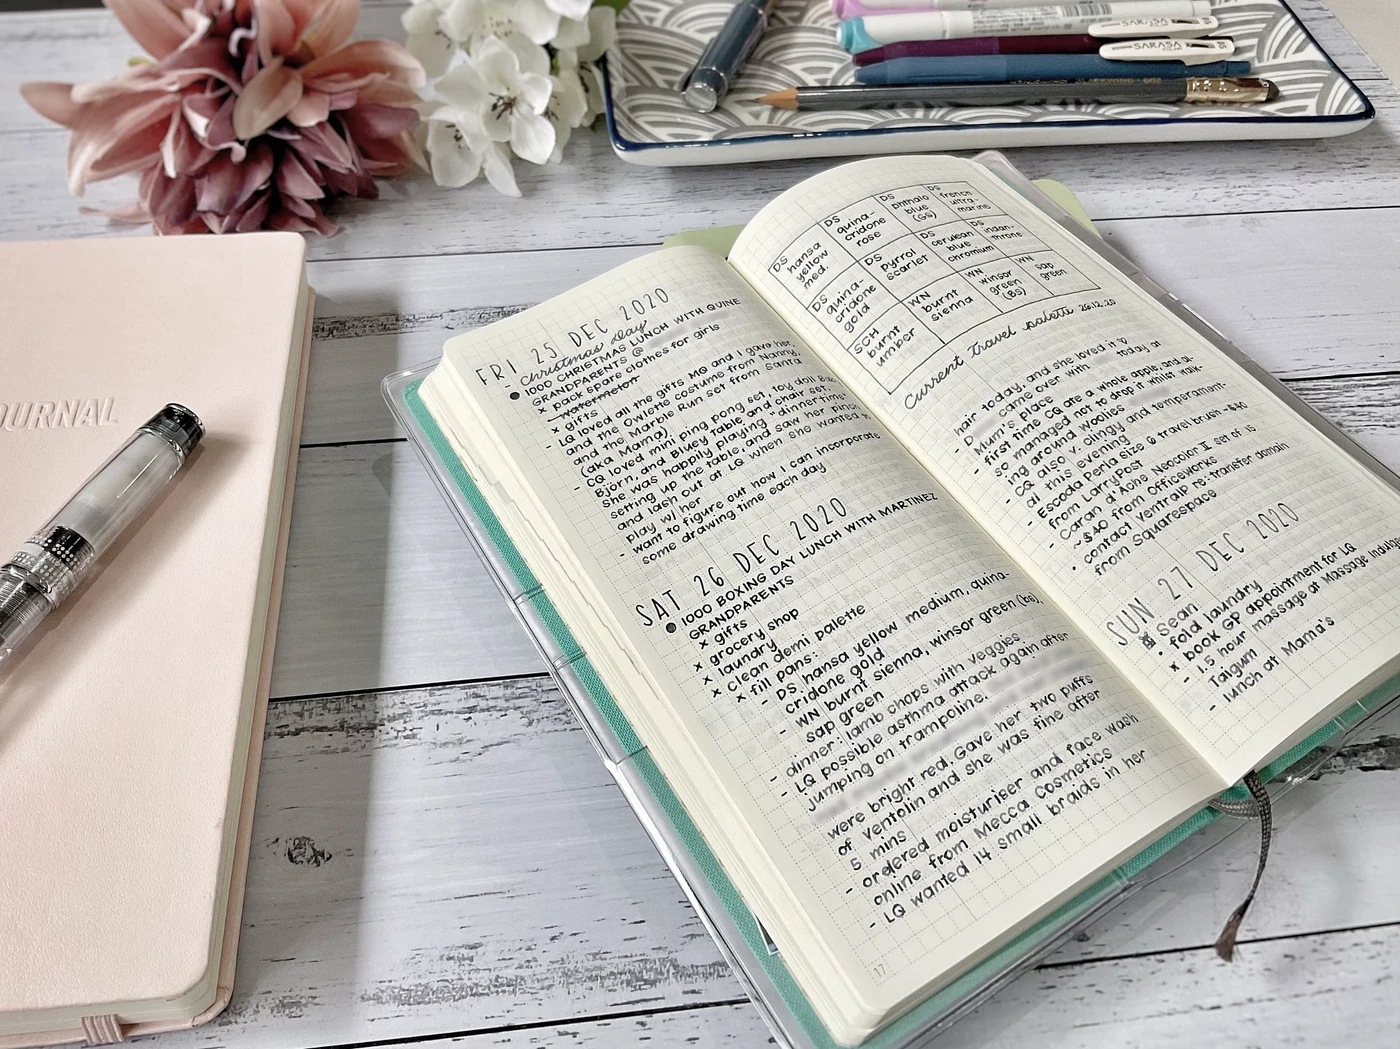 JOURNAL
SARASA
SARASA
FRI 25 DEC 2020
- Christmas day
● 1000 CHRISTMAS LUNCH WITH QUINE
GRANDPARENTS @
x pack spare clothes for girls
- watermelon
x gifts
- LQ loved all the gifts MQ and I gave her,
and the Owlette costume from Nanny,
and the Marble Run set from Santa
(aka Mama).
- CQ loved mini ping pong set, toy doll
Björn, and Bluey table and chair set.
She was happily playing "dinnertime"
setting up the table, and saw her
and lash out at LQ when she wanted to
play w/ her
- want to figure out how I can incorporate
some drawing time each day
SAT 26 DEC 2020
● 1000 BOXING DAY LUNCH WITH MARTINEZ
GRANDPARENTS
x gifts
x grocery shop
x laundry
x clean demi palette
x fill pans:
- DS hansa yellow medium, quina-
cridone gold
- WN burnt sienna, winsor green (bs),
sap green
- dinner: lamb chops with veggies
- LQ possible asthma attack again after
jumping on trampoline.
were bright red. Gave her two puffs
of Ventolin and she was fine after
5 mins
- ordered moisturiser and face wash
online from Mecca Cosmetics
- LQ wanted 14 small braids in her
17
DS hansa yellow med.
DS quina-cridone rose
DS phthalo blue (GS)
DS french ultra-marine
DS quina-cridone gold
DS pyrrol scarlet
DS cerulean blue chromium
DS indan-throne
SCH burnt umber
WN burnt sienna
WN winsor green (BS)
WN sap green
Current travel palette 26.12.20
hair today, and she loved it ♡
- D came over with today at
Mum's place
- first time CQ ate a whole apple, and al-
so managed not to drop it whilst walk-
ing around Woolies
- CQ also v. clingy and temperament-
al this evening
- Escoda Perla size 6 travel brush ~$40
from LarryPost
- Caran d'Ache Neocolor II set of 15
~$40 from Officeworks
• contact VentraIP re: transfer domain
from Squarespace
SUN 27 DEC 2020
Sean
• fold laundry
x book GP appointment for LQ
- 1.5 hour massage at Massage Indulge
Taigum
- lunch at Mama's